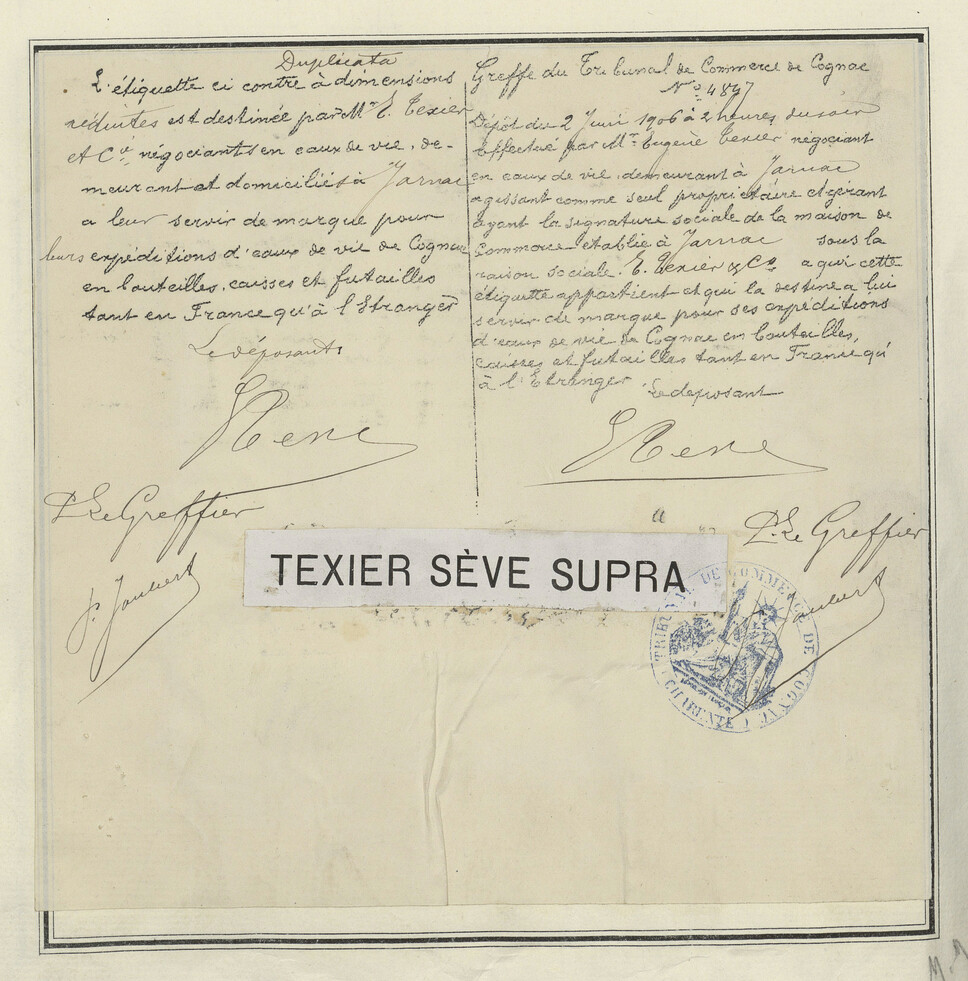 Duplicata
L'étiquette ci contre à dimensions
réduites est destinée par Mr E. Texier
et Cie négociants en eaux de vie, de-
meurant et domiciliés à Jarnac
a leur servir de marque pour
leurs expéditions d'eaux de vie de Cognac
en bouteilles, caisses et futailles
tant en France qu'à l'Etranger
Le déposant
P. Le Greffier
Greffe du Tribunal de Commerce de Cognac
No 4897
Dépôt du 2 Juin 1906 à 2 heures du soir
Effectué par Mr Eugène Texier négociant
en eaux de vie, demeurant à Jarnac
agissant comme seul propriétaire et gérant
ayant la signature sociale de la maison de
Commerce établie à Jarnac sous la
raison sociale. E. Texier & Co a qui cette
étiquette appartient et qui la destine a lui
servir de marque pour ses expéditions
d'eaux de vie de Cognac en bouteilles,
caisses et futailles tant en France qu'
à l'Etranger
Le deposant
P. Le Greffier
TEXIER SÈVE SUPRA
TRIBUNAL DE COMMERCE DE COGNAC
CHARENTE